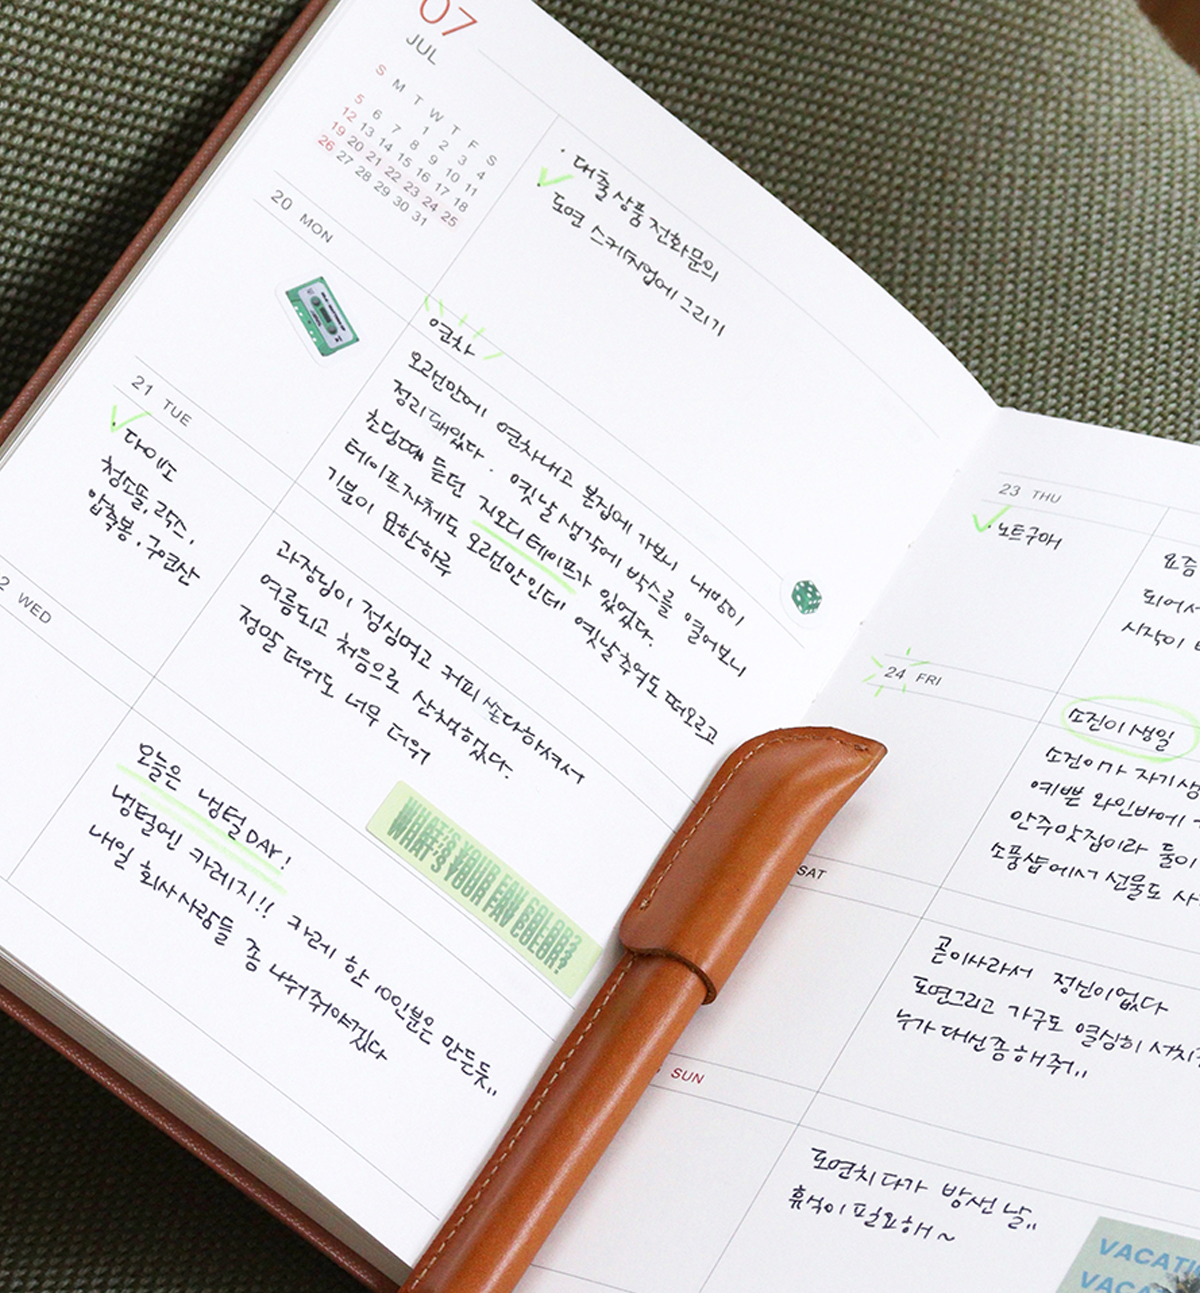 07
JUL
S M T W T F S
1 2 3 4
5 6 7 8 9 10 11
12 13 14 15 16 17 18
19 20 21 22 23 24 25
26 27 28 29 30 31
· 대출상품 전화문의
· 도면 스케치업에 그리기
20 MON
연차
오랜만에 연차내고 본집에 가보니 내방이
정리돼있다. 옛날생각에 박스를 열어보니
초딩때 듣던 저오디테이프가 있었다.
테이프자체도 오랜만인데 옛날추억도 떠오르고
기분이 묘한하루
21 TUE
· 다이소
청소솔, 락스,
압축봉, 구연산
과장님이 점심먹고 커피 쏘다하셔서
여름되고 처음으로 산책하였다.
정말 더워도 너무 더워
2 WED
오늘은 냉털DAY!
냉털엔 카레지!! 카레 한 10인분은 만든듯..
내일 회사사람들 좀 나눠줘야겠다
WHAT'S YOUR FAV COLOR?
WHAT'S YOUR FAV COLOR?
23 THU
· 노트구매
요즘
되어서
시작이
24 FRI
소진이생일
소진이가 자기생
예쁜 와인바에
안주맛집이라 둘이
소품샵에서 선물도 사
SAT
곧이사라서 정신이없다
도면그리고 가구도 열심히 서치
누가대신좀해줘..
SUN
도면치다가 밤샌날..
휴식이필요해~
VACATI
VACA